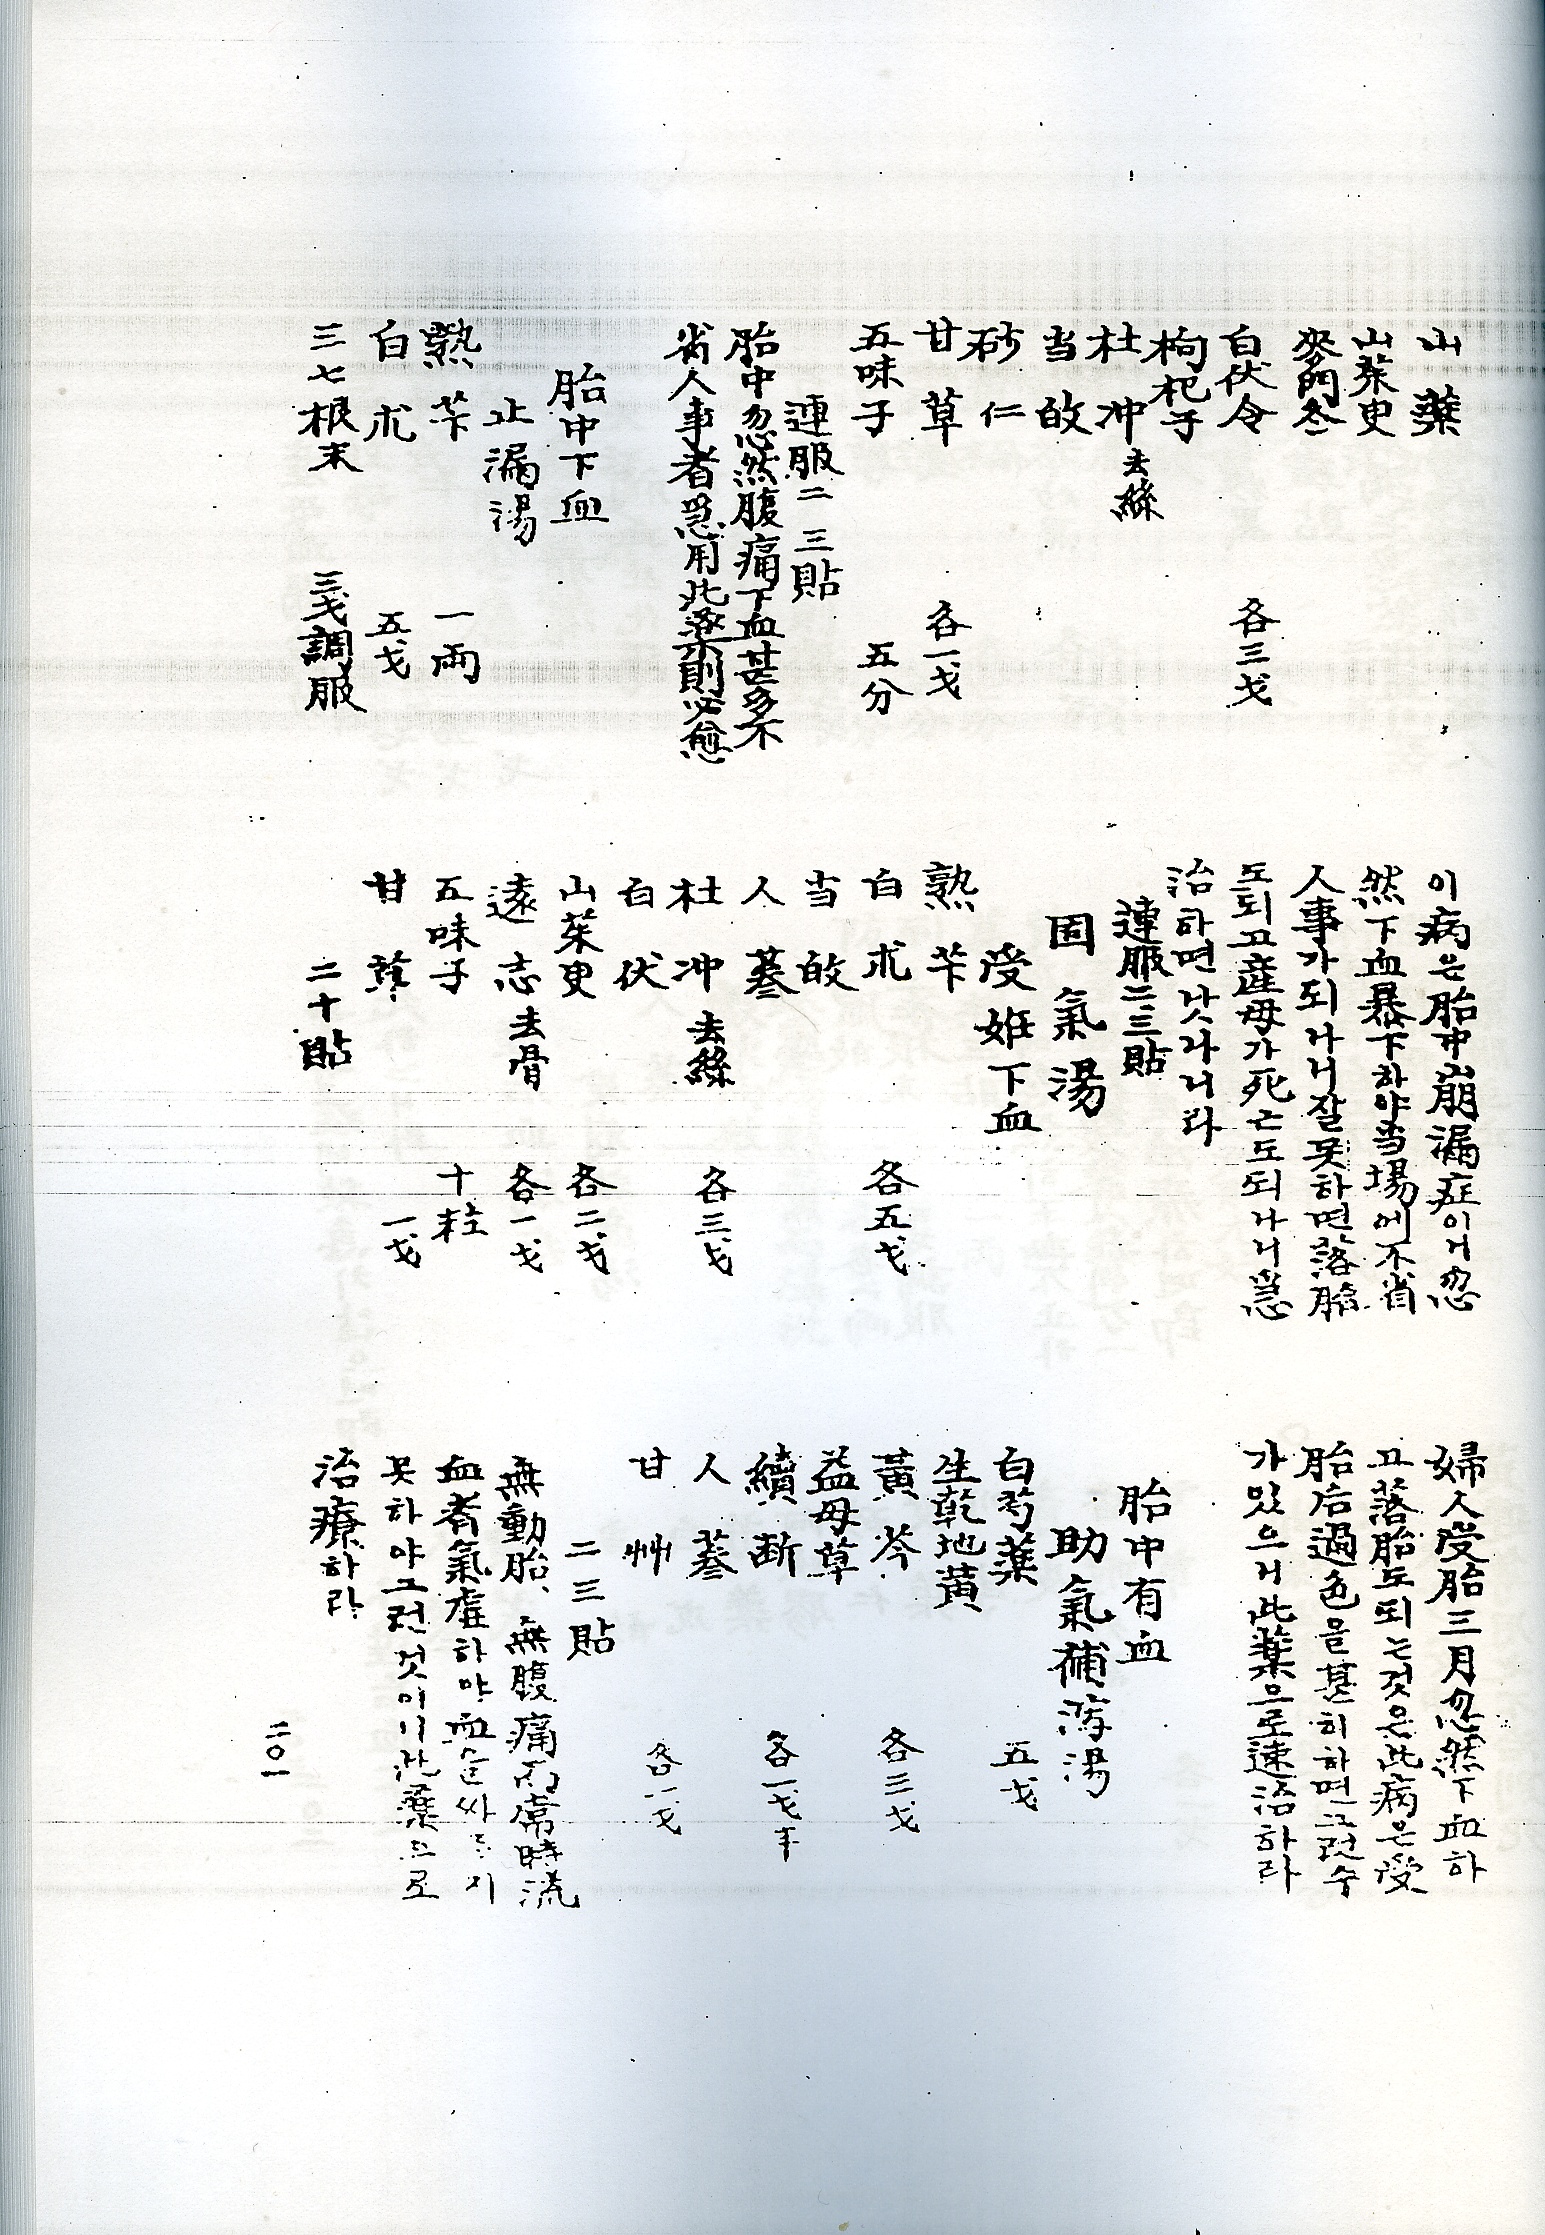 山藥
山茱萸
麥門冬
白伏令 各三戈
枸杞子
杜冲去絲
当皈
砂仁
甘草 各一戈
五味子 五分
連服二三貼
胎中忽然腹痛下血甚多不
省人事者急用此藥則必愈
胎中下血
止漏湯
熟芐 一両
白朮 五戈
三七根末 三戈調服
이病은胎中崩漏症이니忽
然下血暴下하야当場에不省
人事가되나니잘못하면落胎
도되고産母가死亡도되나니急
治하면낫나니라
連服二三貼
固氣湯
受姙下血
熟芐
白朮 各五戈
当皈
人蔘
杜冲去絲 各三戈
白伏
山茱萸 各二戈
遠志去骨 各一戈
五味子 十粒
甘草 一戈
二十貼
婦人受胎三月忽然下血하
고落胎도되는것은此病은受
胎后過色을甚히하면그런수
가있으니此藥으로速治하라
胎中有血
助氣補漏湯
白芍藥 五戈
生乾地黃
黃芩 各三戈
益母草
續断 各一戈半
人蔘
甘艸 各一戈
二三貼
無動胎、無腹痛而常時流
血者氣虛하야血을싸드지
못하야그런것이니此藥으로
治療하라
二〇一